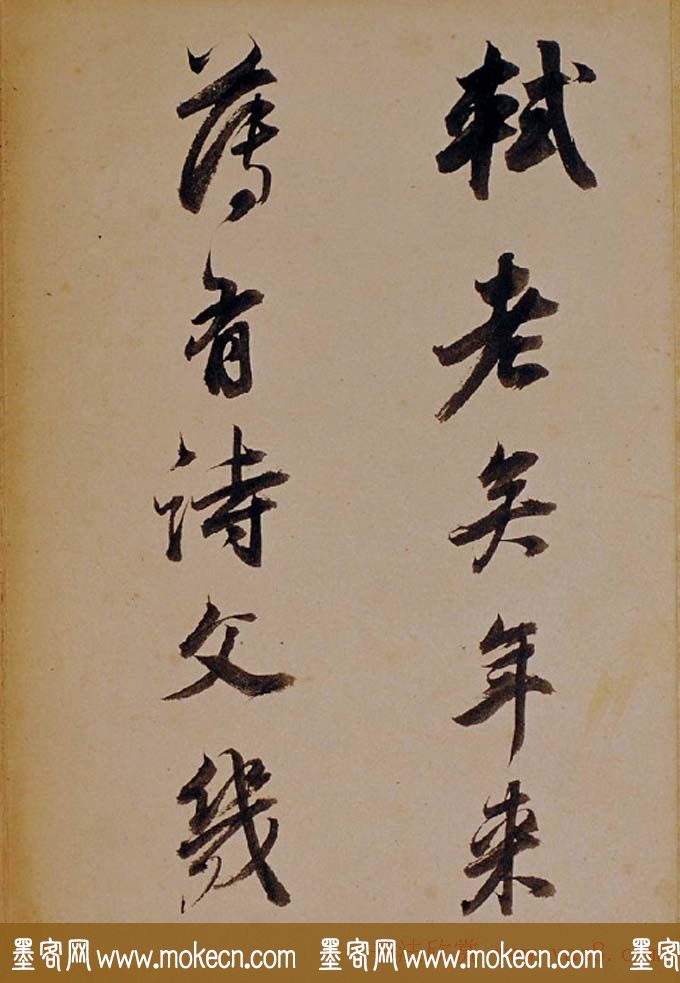 軾老矣年来
薄有詩文幾
墨客网 www.mokecn.com 墨客网 www.mokecn.com